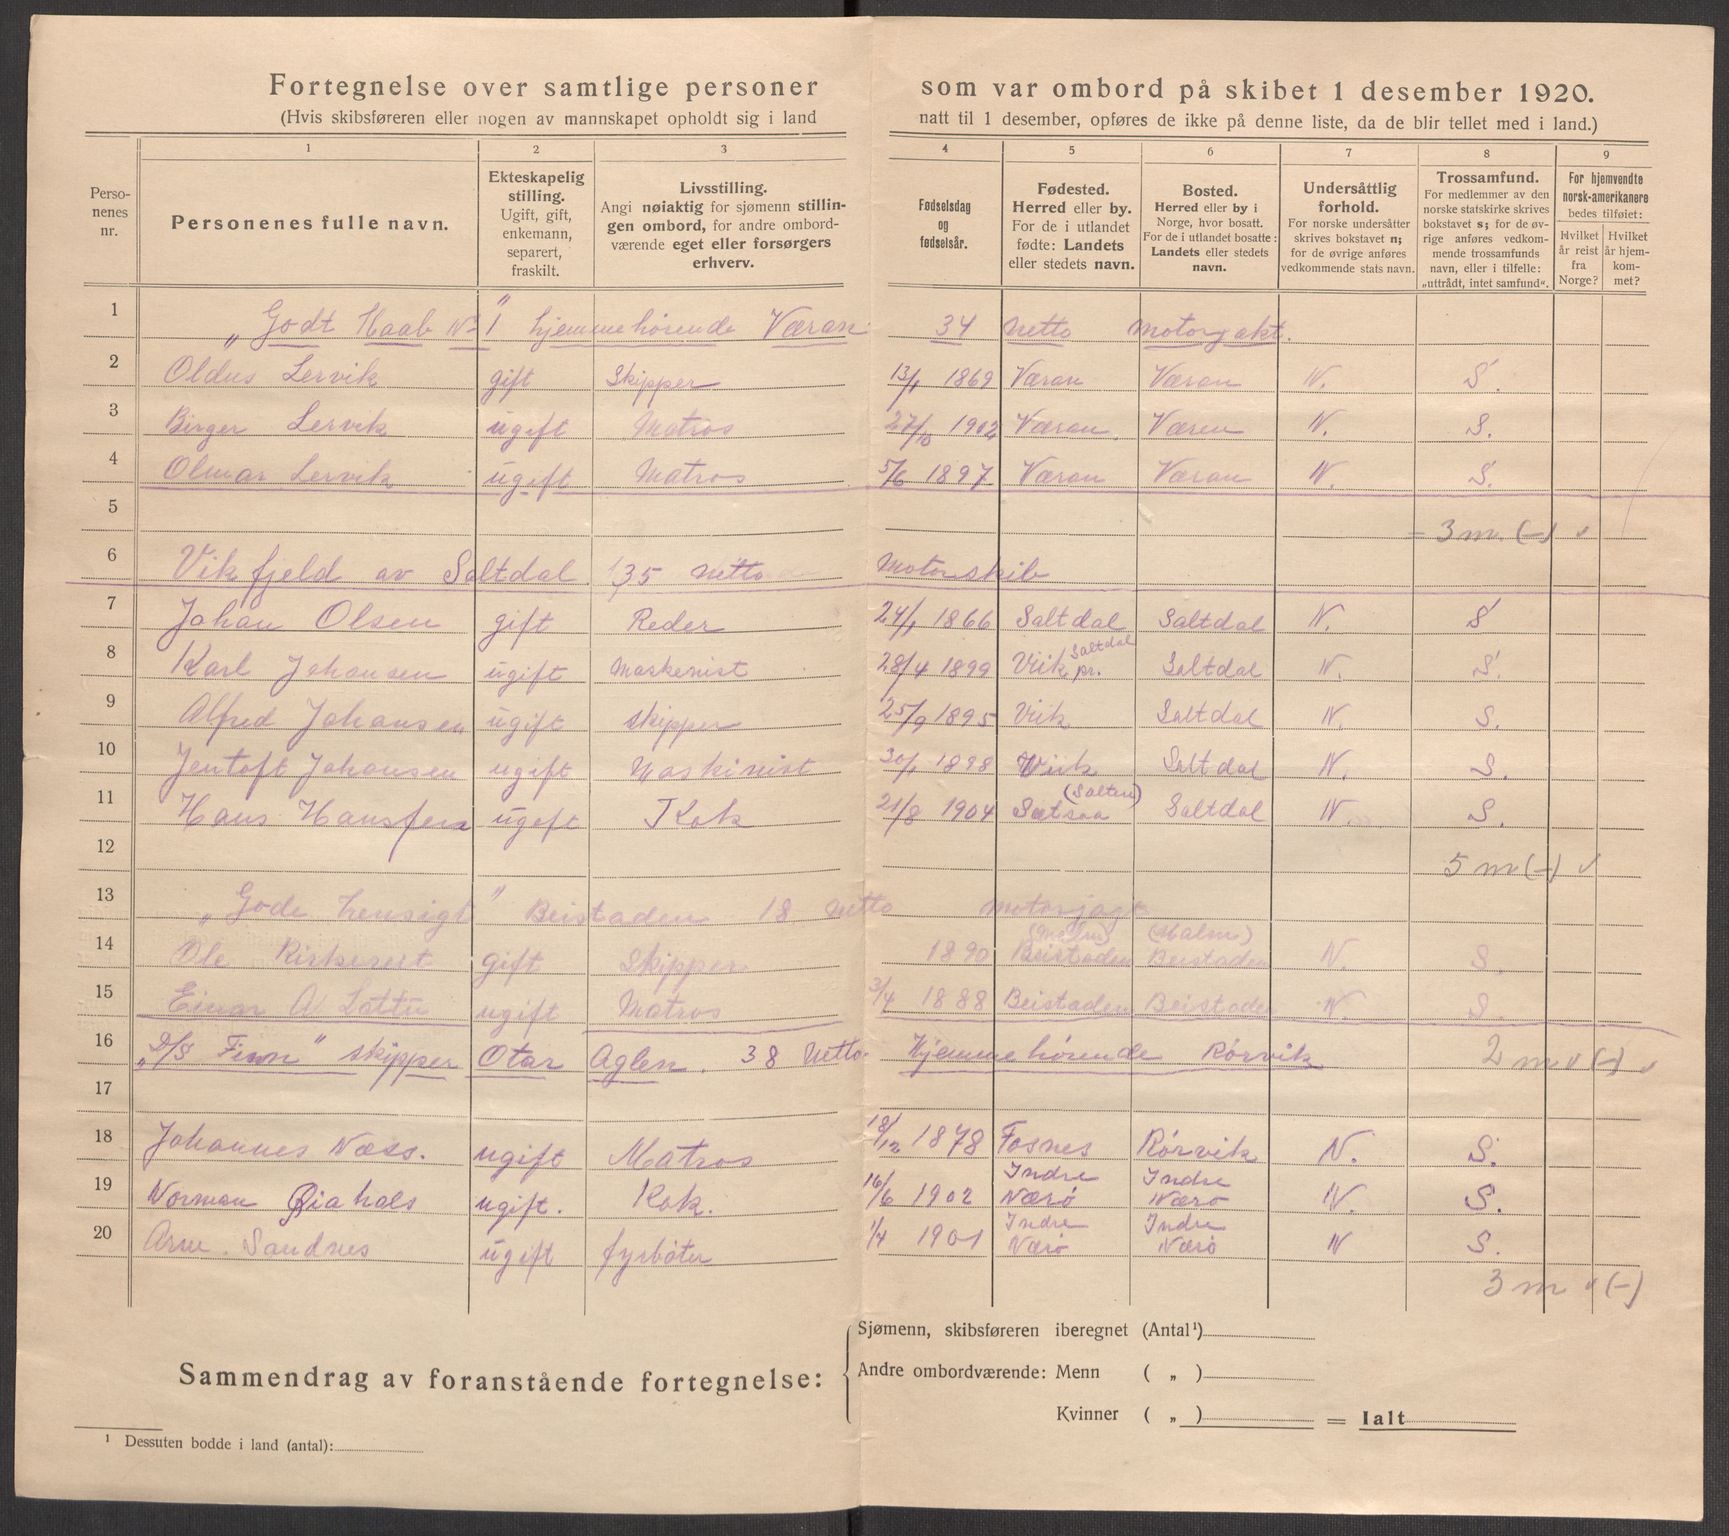 Fortegnelse over samtlige personer som var ombord på skibet 1 desember 1920.
(Hvis skibsføreren eller nogen av mannskapet opholdt sig i land natt til 1 desember, opføres de ikke på denne liste, da de blir tellet med i land.)
Perso-nenes nr.
1
Personenes fulle navn.
2
Ekteskapelig stilling.
Ugift, gift, enkemann, separert, fraskilt.
3
Livsstilling.
Angi nøiaktig for sjømenn stillingen ombord, for andre ombordværende eget eller forsørgers erhverv.
4
Fødselsdag og fødselsår.
5
Fødested.
Herred eller by.
For de i utlandet fødte: Landets eller stedets navn.
6
Bosted.
Herred eller by i Norge, hvor bosatt.
For de i utlandet bosatte: Landets eller stedets navn.
7
Undersåttlig forhold.
For norske undersåtter skrives bokstavet n; for de øvrige anføres vedkommende stats navn.
8
Trossamfund.
For medlemmer av den norske statskirke skrives bokstavet s; for de øvrige anføres vedkommende trossamfunds navn, eller i tilfelle: „uttrådt, intet samfund“.
9
For hjemvendte norsk-amerikanere bedes tilføiet:
Hvilket år reist fra Norge?
Hvilket år hjemkommet?
1 „Godt Haab No 1“ hjemmehørende Væran 34 netto motorjakt.
2 Oldus Lervik gift Skipper 13/1 1869 Væran Væran N. S.
3 Birger Lervik ugift Matros 27/10 1902 Væran. Væran N. S.
4 Olmar Lervik ugift Matros 5/6 1897 Væran Væran N. S.
5 3 m (-)
6 Vikfjeld av Saltdal 135 netto Motorskib
7 Johan Olsen gift Reder 24/1 1866 Saltdal Saltdal N. S
8 Karl Johansen ugift Maskenist 28/4 1899 Viik pr. Saltdal Saltdal N. S.
9 Alfred Johansen ugift skipper 25/9 1895 Viik Saltdal N. S.
10 Jentoft Johansen ugift Maskinist 30/1 1898 Viik Saltdal N. S.
11 Hans Hansen ugift Kok 21/8 1904 (Salten) Saltdal N. S.
12 5 m (-)
13 „Gode hensigt“ Beistaden 18 netto motorjagt
14 Ole gift Skipper 1890 (Malm) Beistaden (Malm) Beistaden N. S.
15 Einar A ugift Matros 3/4 1888 Beistaden Beistaden N. S.
16 „D/S Finn“ skipper Otar Aglen. 38 Netto. Hjemmehørende Rørvik 2 m (-)
17
18 Johannes Næss. ugift Matros 18/12 1878 Fosnes Rørvik N. S.
19 Norman ugift. Kok. 16/6 1902 Indre Nærø Indre Nærø N. S.
20 Arne. Sandnes ugift fyrbøter 1/4 1901 Indre Nærø Indre Nærø N S.
3 m (-)
Sammendrag av foranstående fortegnelse:
Sjømenn, skibsføreren iberegnet (Antal¹)
Andre ombordværende: Menn ( „ )
Kvinner ( „ ) = Ialt
¹ Dessuten bodde i land (antal):